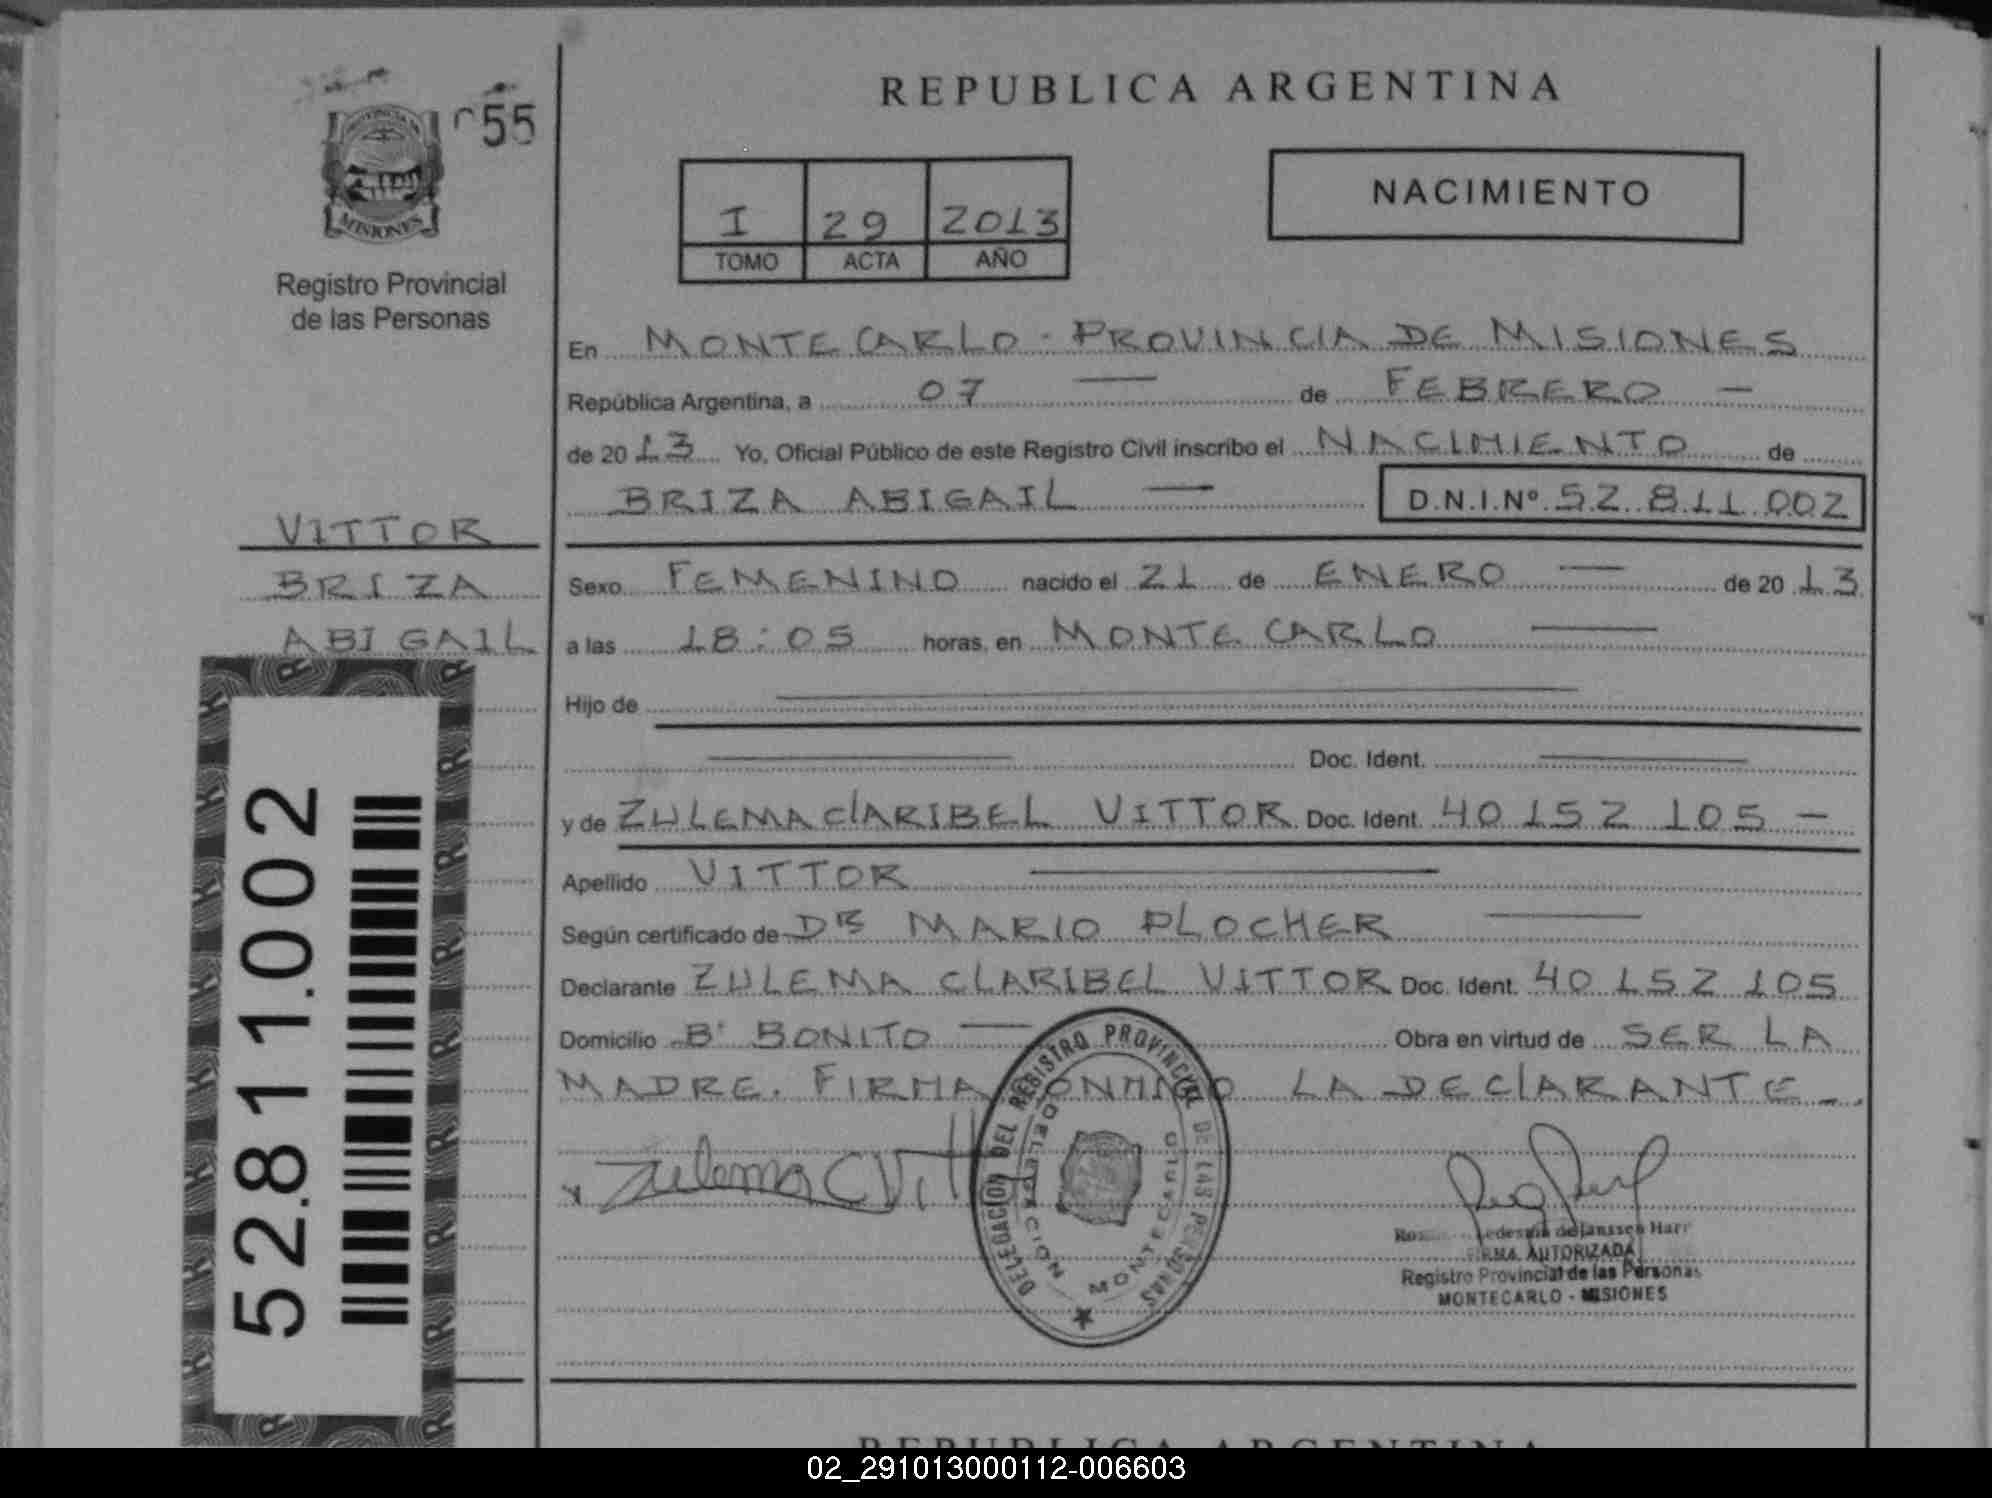 REPUBLICA ARGENTINA
55
PROVINCIA DE
MISIONES
Registro Provincial
de las Personas
NACIMIENTO
I 29 2013
TOMO ACTA AÑO
En MONTECARLO - PROVINCIA DE MISIONES
República Argentina, a 07 — de FEBRERO —
de 2013 Yo, Oficial Público de este Registro Civil inscribo el NACIMIENTO de
BRIZA ABIGAIL — D.N.I.Nº 52 811 002
VITTOR
BRIZA
ABIGAIL
52.811.002
Sexo FEMENINO nacido el 21 de ENERO — de 2013
a las 18:05 horas, en MONTECARLO —
Hijo de —
— Doc. Ident. —
y de ZULEMA CLARIBEL VITTOR Doc. Ident. 40 152 105 —
Apellido VITTOR —
Según certificado de DR MARIO PLOCHER —
Declarante ZULEMA CLARIBEL VITTOR Doc. Ident. 40 152 105
Domicilio Bº BONITO — Obra en virtud de SER LA
MADRE. FIRMA CONMIGO LA DECLARANTE -
Zulema C Vitt
DELEGACION DEL REGISTRO PROVINCIAL DE LAS PERSONAS
DELEGACION MONTECARLO
de Janssen Harr
FIRMA AUTORIZADA
Registro Provincial de las Personas
MONTECARLO - MISIONES
REPUBLICA ARGENTINA
02_291013000112-006603